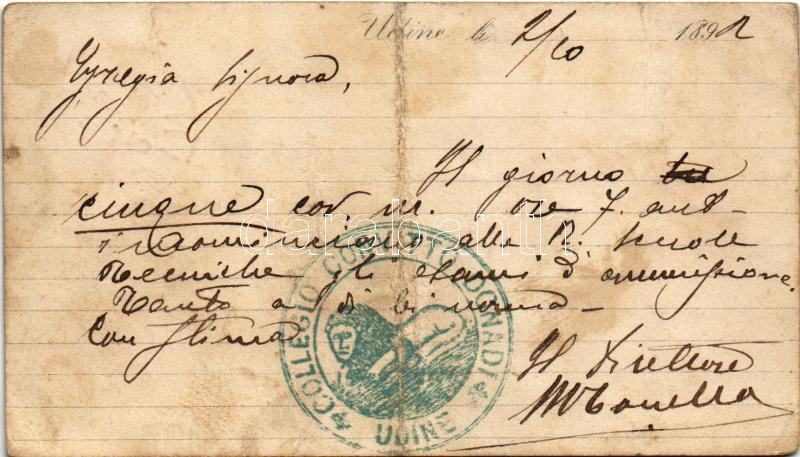 Udine li 2/10 1892
Egregia Signora,
Il giorno
cinque cor. m. ore 7. ant-
incominciano alle R. Scuole
Tecniche gli esami d'ammissione.
Tanto a di Lei norma-
Con stima
Il Direttore
COLLEGIO CONVITTO DONADI
UDINE
darabanth